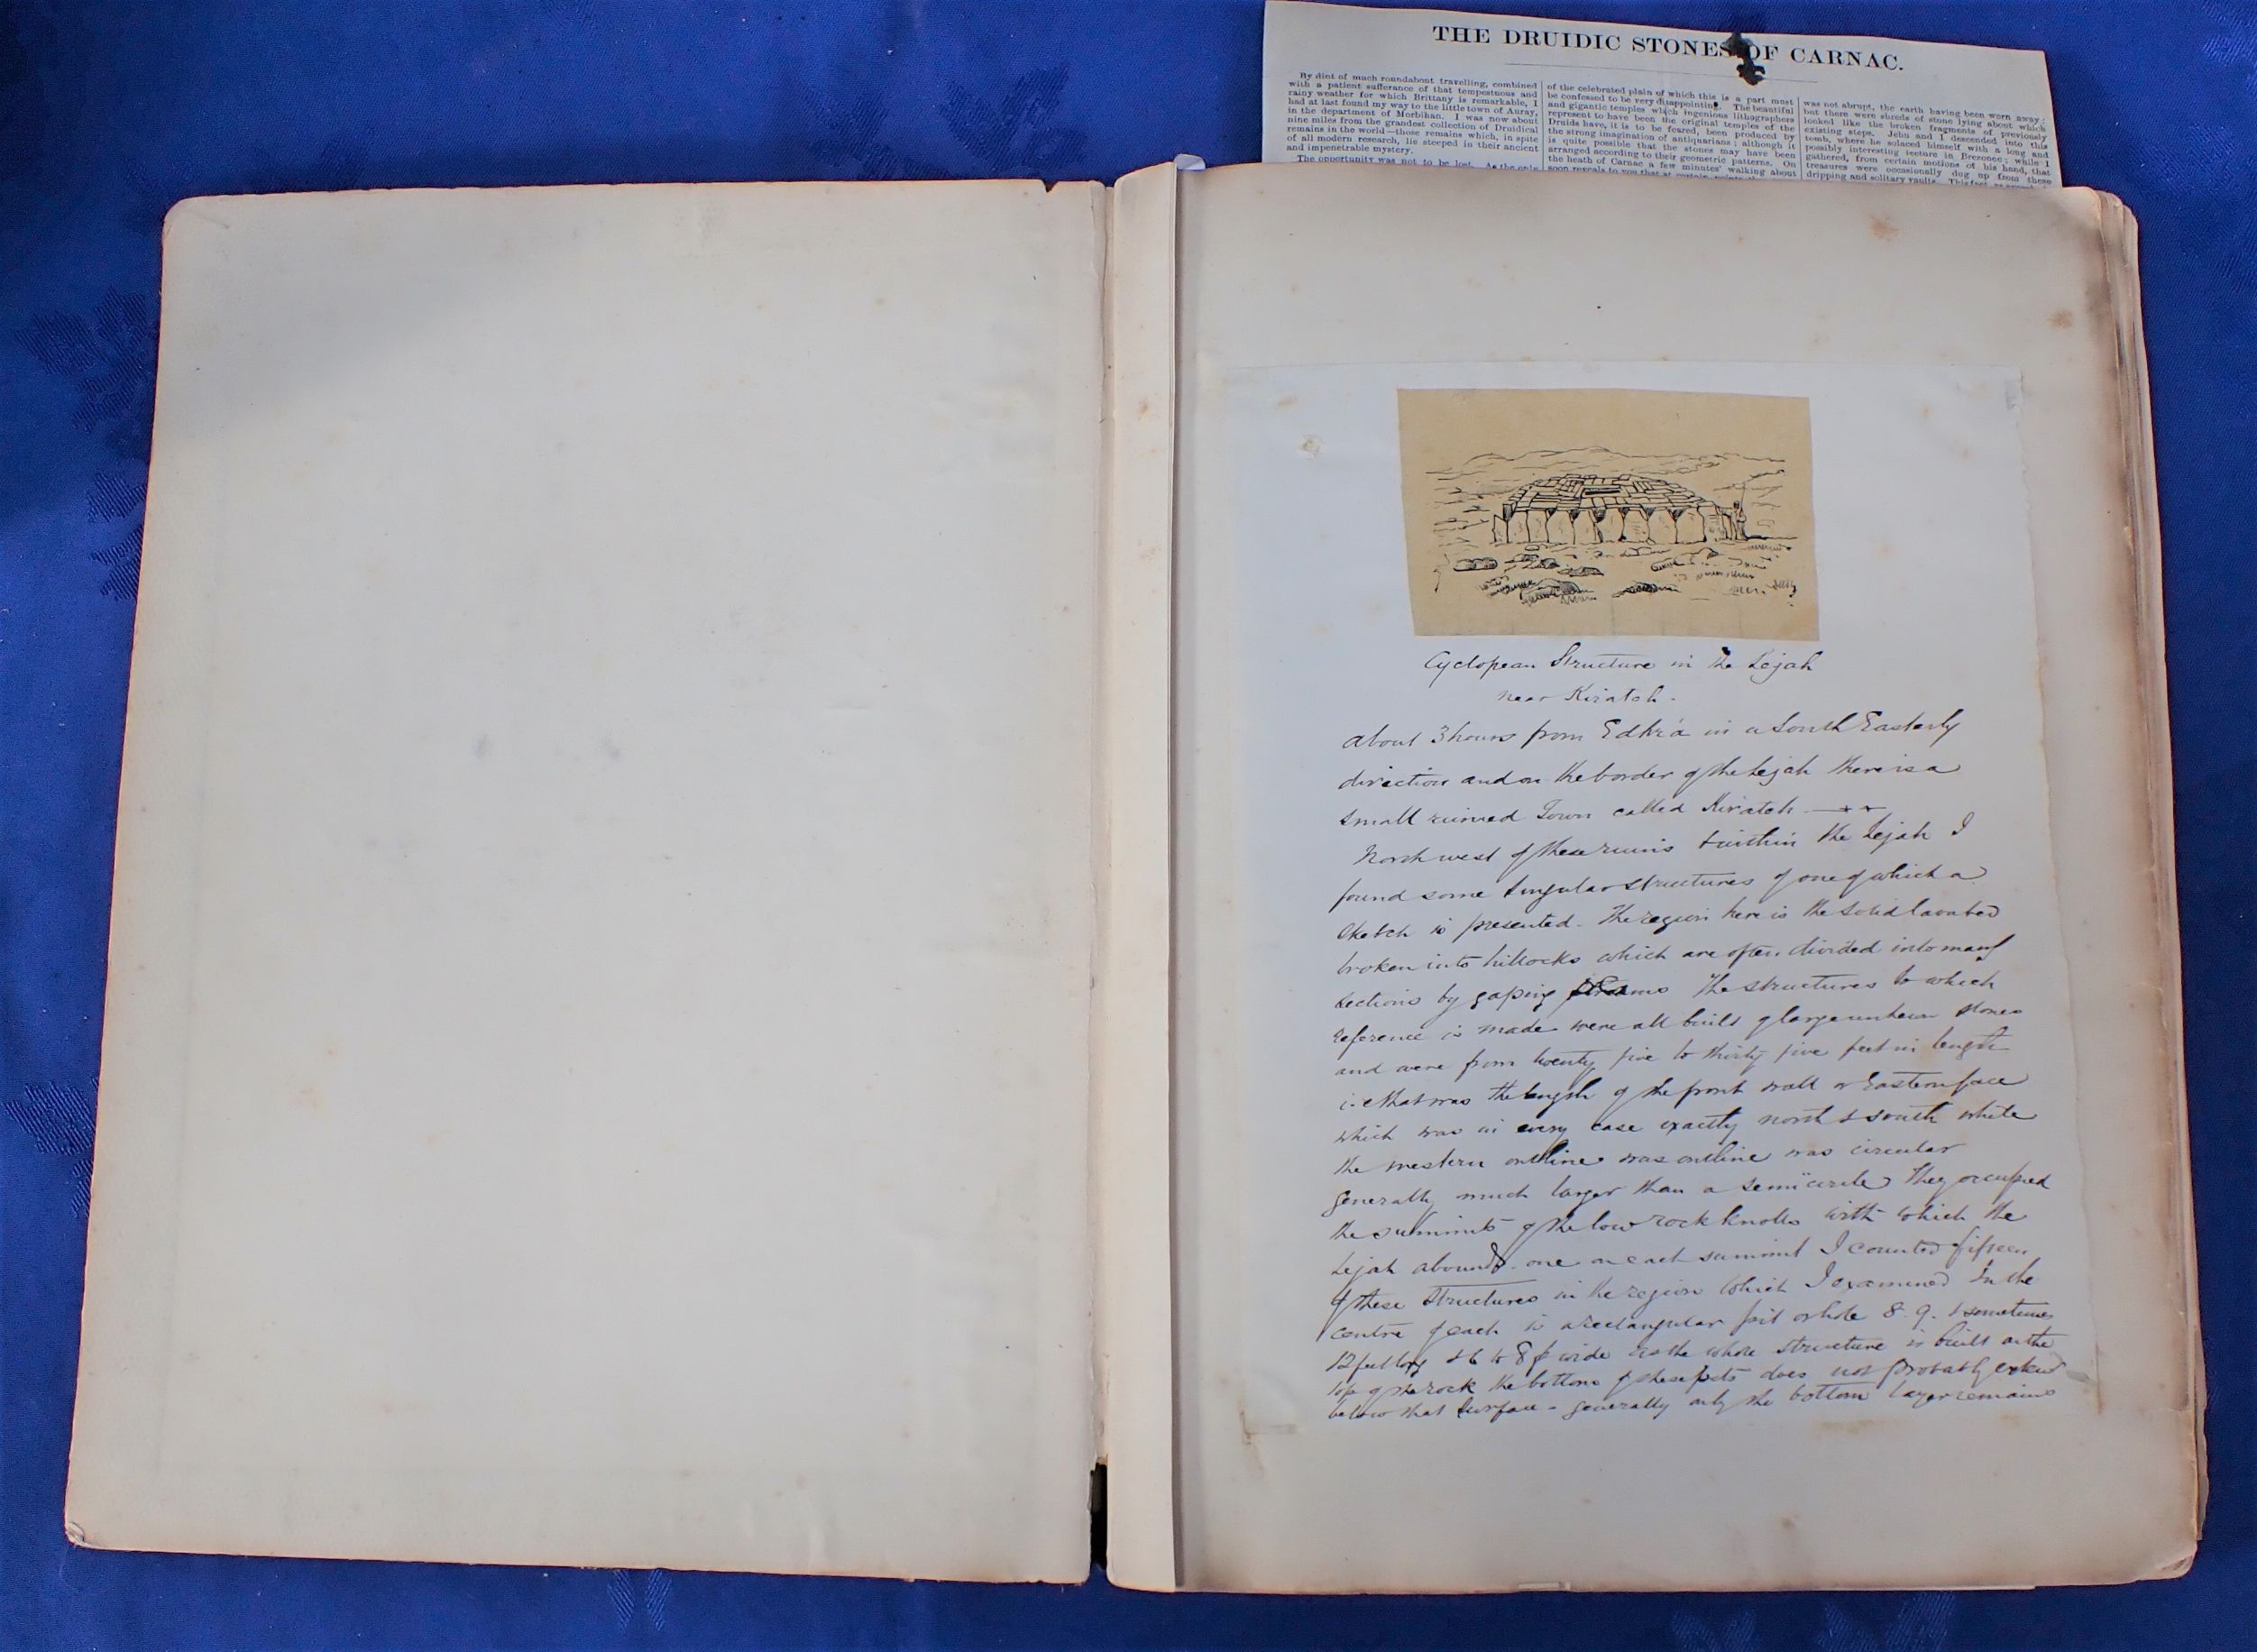 THE DRUIDIC STONES OF CARNAC.
By dint of much roundabout travelling, combined
with a patient sufferance of that tempestuous and
rainy weather for which Brittany is remarkable, I
had at last found my way to the little town of Auray,
in the department of Morbihan. I was now about
nine miles from the grandest collection of Druidical
remains in the world—those remains which, in spite
of all modern research, lie steeped in their ancient
and impenetrable mystery.
The opportunity was not to be lost. As the only
of the celebrated plain of which this is a part must
be confessed to be very disappointing. The beautiful
and gigantic temples which ingenious lithographers
represent to have been the original temples of the
Druids have, it is to be feared, been produced by
the strong imagination of antiquarians; although it
is quite possible that the stones may have been
arranged according to their geometric patterns. On
the heath of Carnac a few minutes' walking about
soon reveals to you that at certain points
was not abrupt, the earth having been worn away;
but there were shreds of stone lying about which
looked like the broken fragments of previously
existing steps. Jehu and I descended into this
tomb, where he solaced himself with a long and
possibly interesting lecture in Brezonec; while I
gathered, from certain motions of his hand, that
treasures were occasionally dug up from these
dripping and solitary vaults. This fact
Cyclopean Structure in the Lejah
near Kiratch.
About 3 hours from Edhra in a South Easterly
direction and on the border of the Lejah there is a
small ruined Town called Kiratch
North west of these ruins & within the Lejah I
found some singular structures of one of which a
sketch is presented. The region here is the solid lava bed
broken into hillocks which are often divided into many
sections by gaping The structures to which
reference is made were all built of large unhewn stones
and were from twenty five to thirty five feet in length
i.e that was the length of the front wall or Eastern face
which was in every case exactly north & south while
the western outline was outline was circular
generally much larger than a semicircle They occupied
the summits of the low rock knolls with which the
Lejah abounds. one on each summit I counted fifteen
of these structures in the region which I examined In the
centre of each is a rectangular pit or hole 8. 9. & sometimes
12 feet long & 6 to 8 ft wide as the whole structure is built on the
top of the rock the bottom of these pits does not probably extend
below that surface - generally only the bottom layer remains